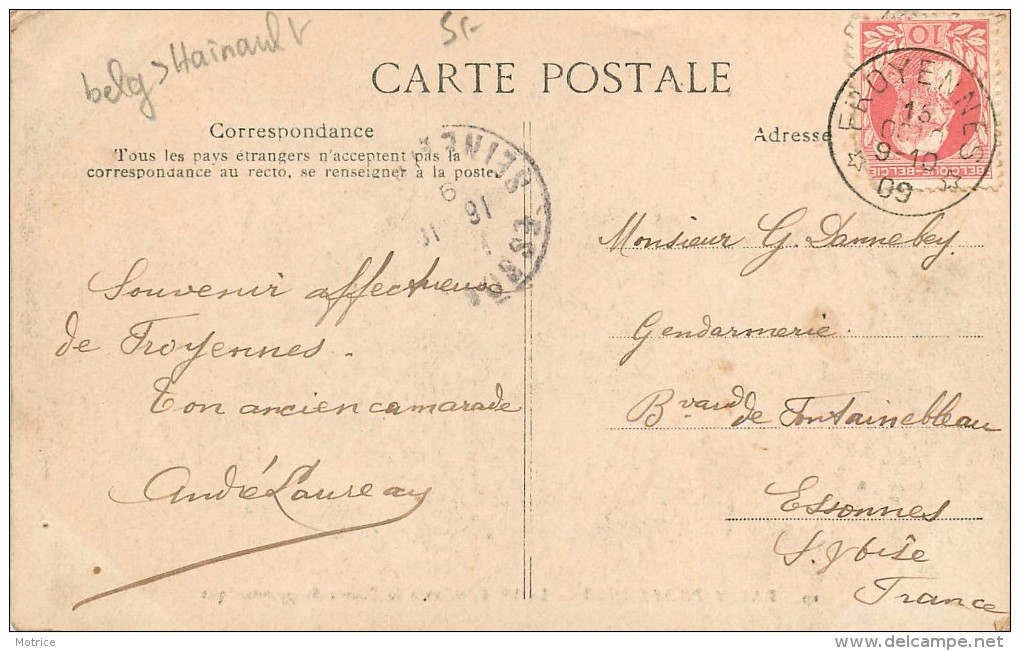 belg > Hainault
5F
CARTE POSTALE
Correspondance
Tous les pays étrangers n'acceptent pas la
correspondance au recto, se renseigner à la poste.
Adresse
10
BELGIQUE-BELGIË
FROYENNES
15
9-10
09
ESSONNES
SEINE
18
9
Souvenir affectueux
de Froyennes.
Ton ancien camarade
André Laureau
Monsieur G. Dannebey
Gendarmerie.
Bvard de Fontainebleau
Essonnes
S. & Oise
France
Motrice
www.delcampe.net